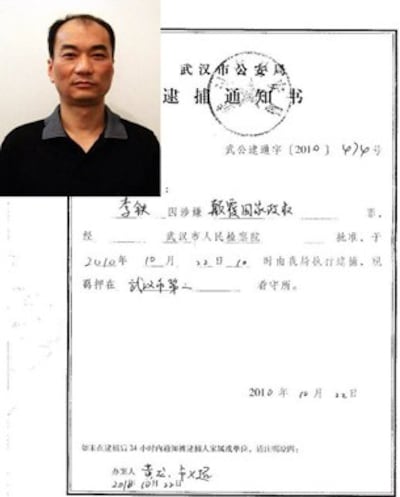 武汉市公安局
逮捕通知书
武公逮通字〔2010〕474号
:
李铁 因涉嫌 颠覆国家政权 罪,
经 武汉市人民检察院 批准,于
2010年10月22日10时由我局执行逮捕,现
羁押在 武汉市第二 看守所。
2010年10月22
如未在逮捕后24小时内通知被逮捕人家属或单位,请注明原因:
办案人
2010.10.22